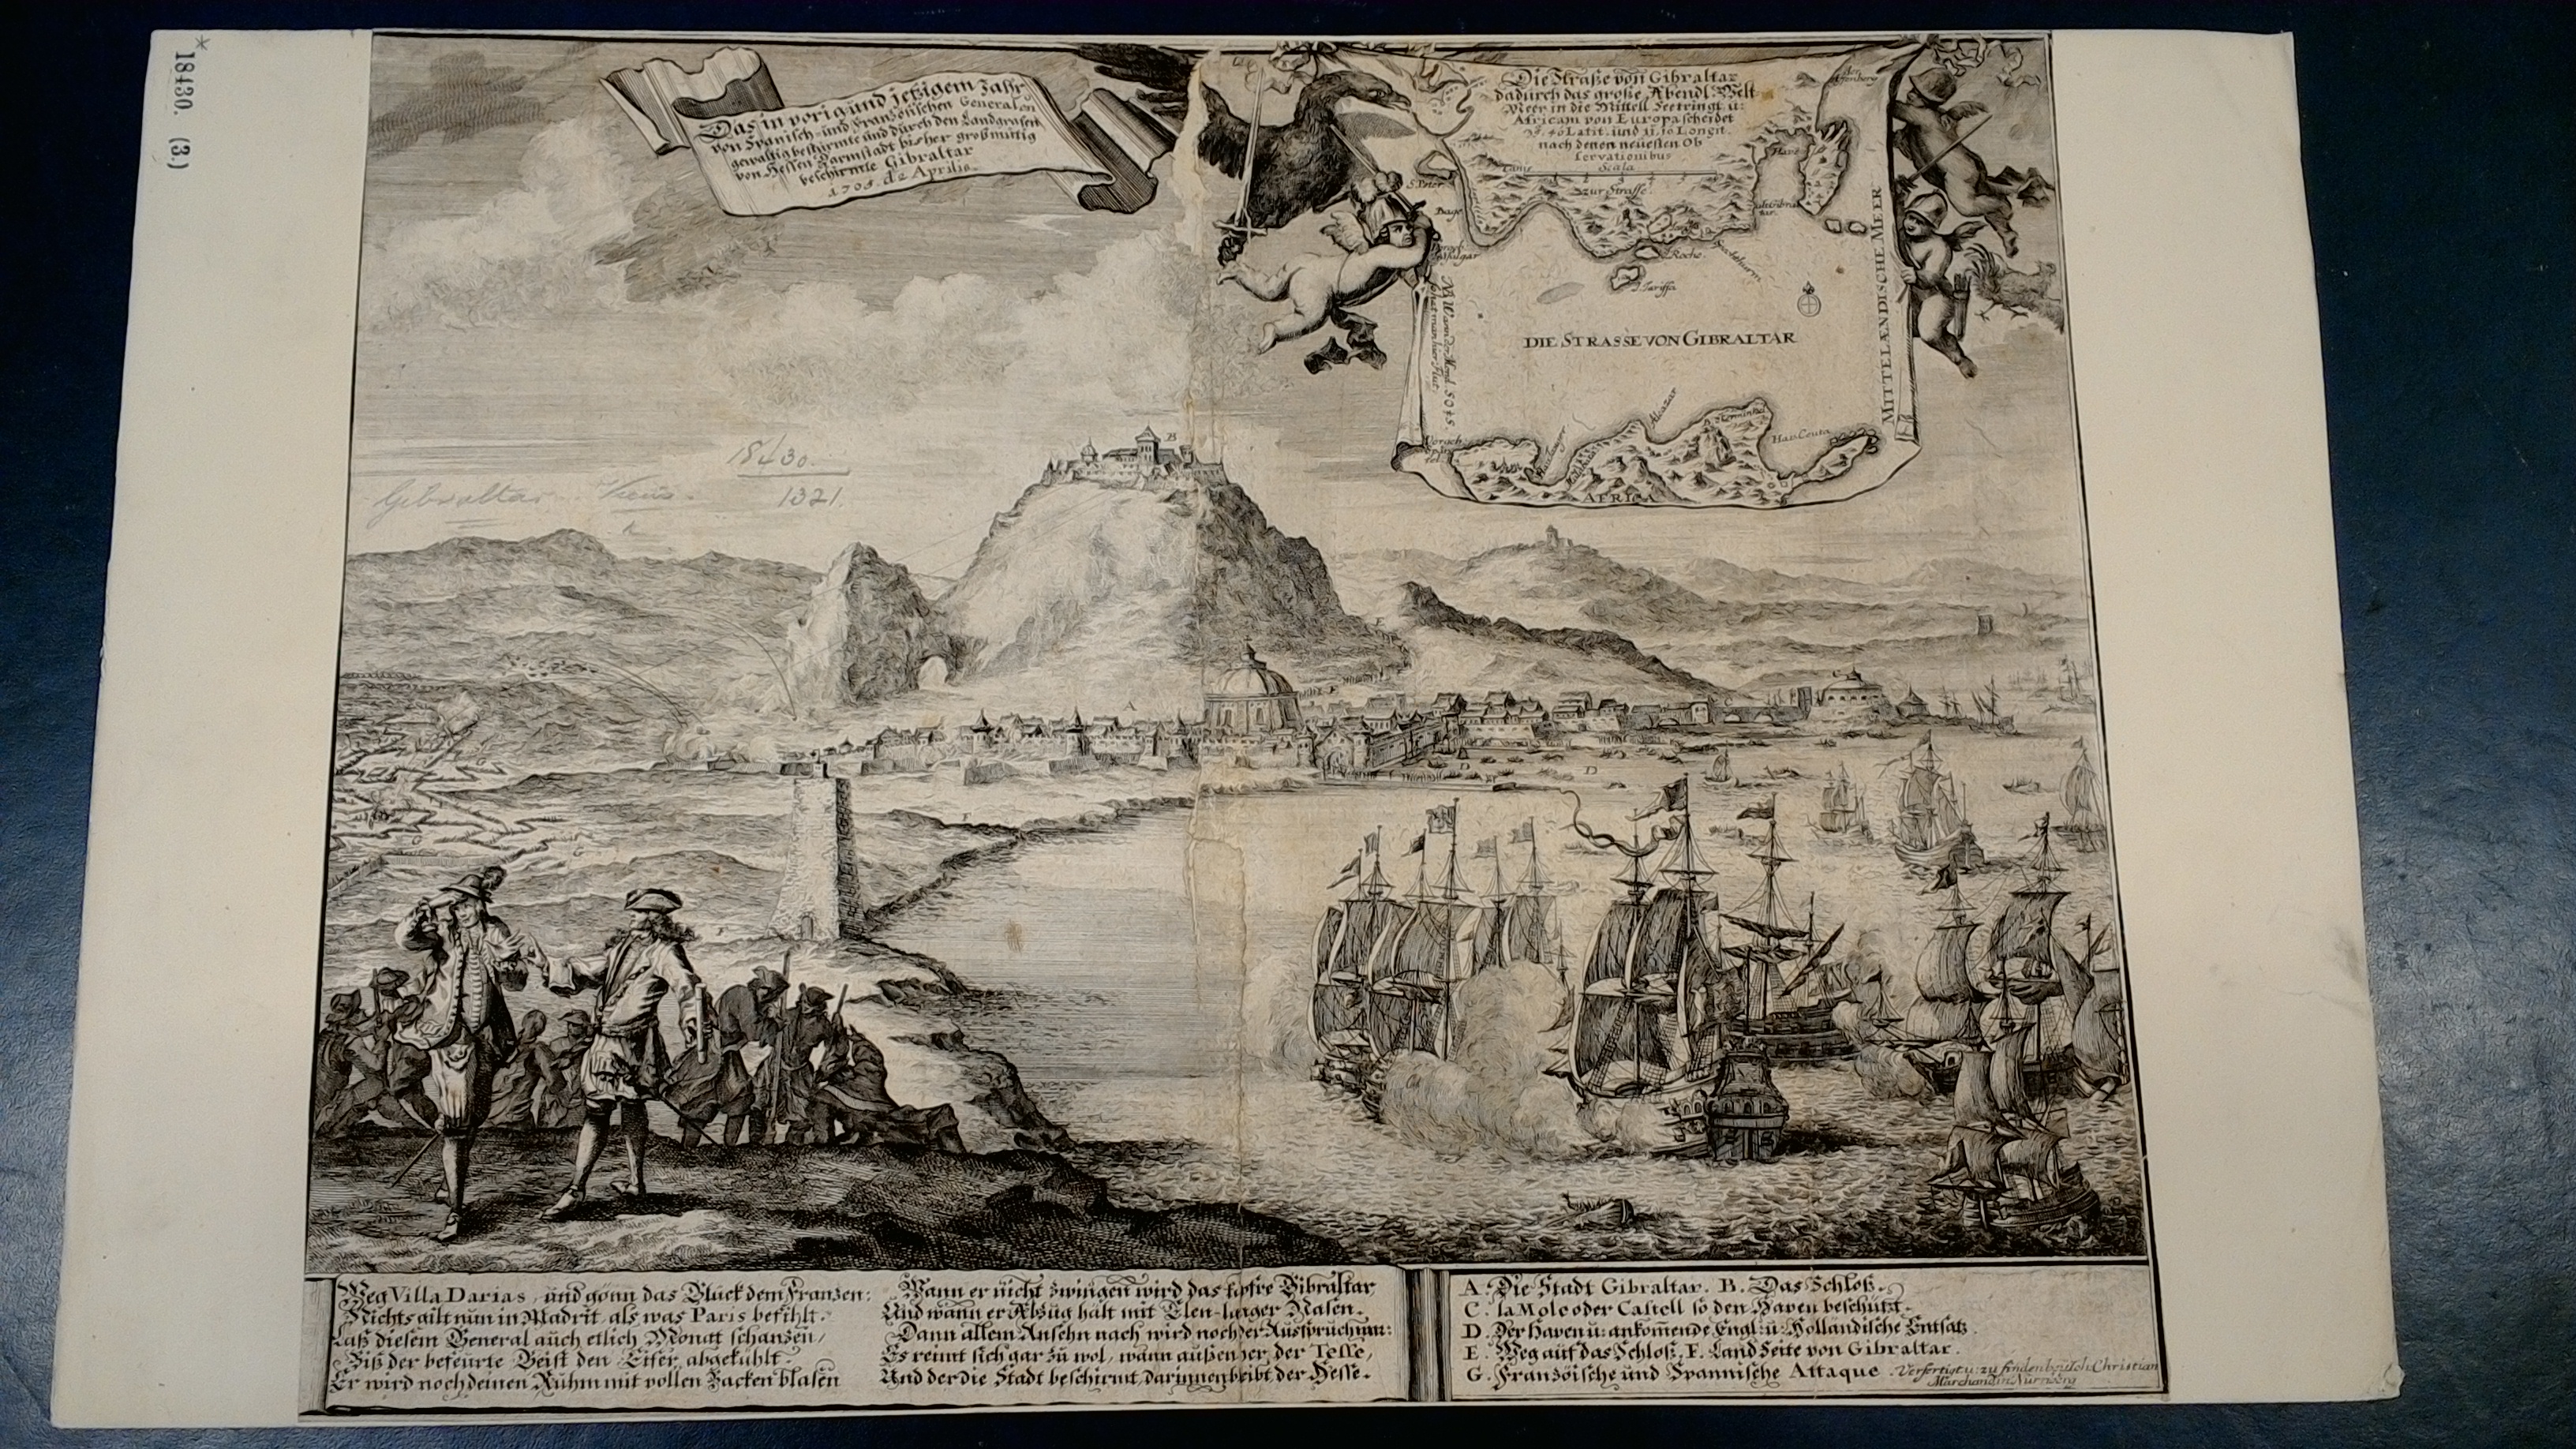 *18430. (3.)
Das in vorig und jetzigem Jahr
von Spanisch- und Französischen Generalen
gewaltig bestürmte und durch den Landgrafen
von Hessen Darmstadt bisher großmütig
beschirmte Gibraltar
1705. d. 2 Aprilis.
Die Straße von Gibraltar
dadurch das große Abendl. Welt
Meer in die Mittell See tringt u:
Africam von Europa scheidet
Latit. und 11. 10 Longit.
nach denen neuesten Ob
servationibus
Scala
zur Strasse
S. Peter
Roche
I. Tariffa
DIE STRASSE VON GIBRALTAR
MITTELÆNDISCHE MEER
Alcazar
Hav. Ceuta
AFRICA
18430.
1321.
Gibraltar. Views.
B
E
A
D
D
F
G
G
Weg Villa Darias, und gönn das Glück dem Franzen:
Nichts gilt nun in Madrit, als was Paris befihlt.
Laß diesem General auch etlich Monat schanzen/
Biß der befeurte Geist den Eifer abgekühlt.
Er wird noch deinen Ruhm mit vollen Backen blasen
Wann er nicht zwingen wird das tapfre Gibraltar
Und wann er Abzug hält mit Elen-langer Nasen.
Dann allem Ansehn nach wird noch der Ausspruch war:
Es reimt sich gar zu wol, wann außen her der Tesse,
Und der die Stadt beschirmt, darinnen bleibt der Hesse.
A. Die Stadt Gibraltar. B. Das Schloß.
C. la Mole oder Castell so den Haven beschützt.
D. Der Haven u: ankom̄ende Engl: u: Holländische Entsatz.
E. Weg auf das Schloß. F. Land Seite von Gibraltar.
G. Französische und Spannische Attaque.
Verfertigt u: zu finden bey Joh: Christian
Marchand in Nürnberg